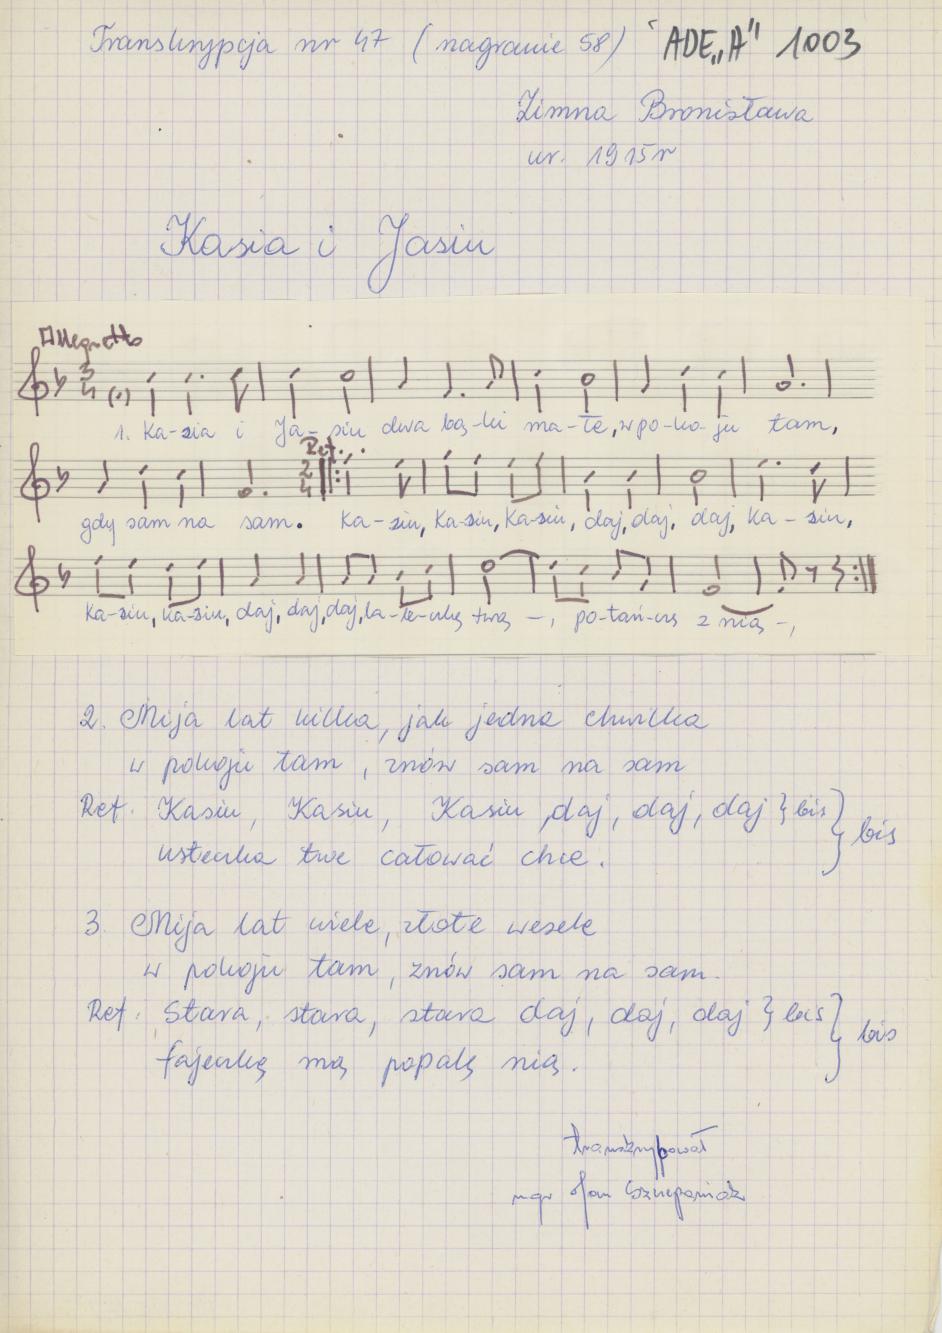 Transkrypcja nr 47 (nagranie 58) ADE„A" 1003
Zimna Bronisława
ur. 1915r
Kasia i Jasiu
Allegretto
3/4
1. Ka-sia i Ja-siu dwa bą-ki ma-łe, w po-ko-ju tam,
Ref.
2/4
gdy sam na sam. Ka-siu, Ka-siu, Ka-siu, daj, daj, daj, Ka-siu,
Ka-siu, Ka-siu, daj, daj, daj, la-lecz-kę twą -, po-tań-czę z nią -,
2. Mija lat kilka, jak jedna chwilka
w pokoju tam, znów sam na sam
Ref. Kasiu, Kasiu, Kasiu, daj, daj, daj } bis } bis
usteczka twe całować chce.
3. Mija lat wiele, złote wesele
w pokoju tam, znów sam na sam.
Ref. Stara, stara, stara daj, daj, daj } bis } bis
fajeczkę mą popalę nią.
transkrybował
mgr Jan Szczepaniak